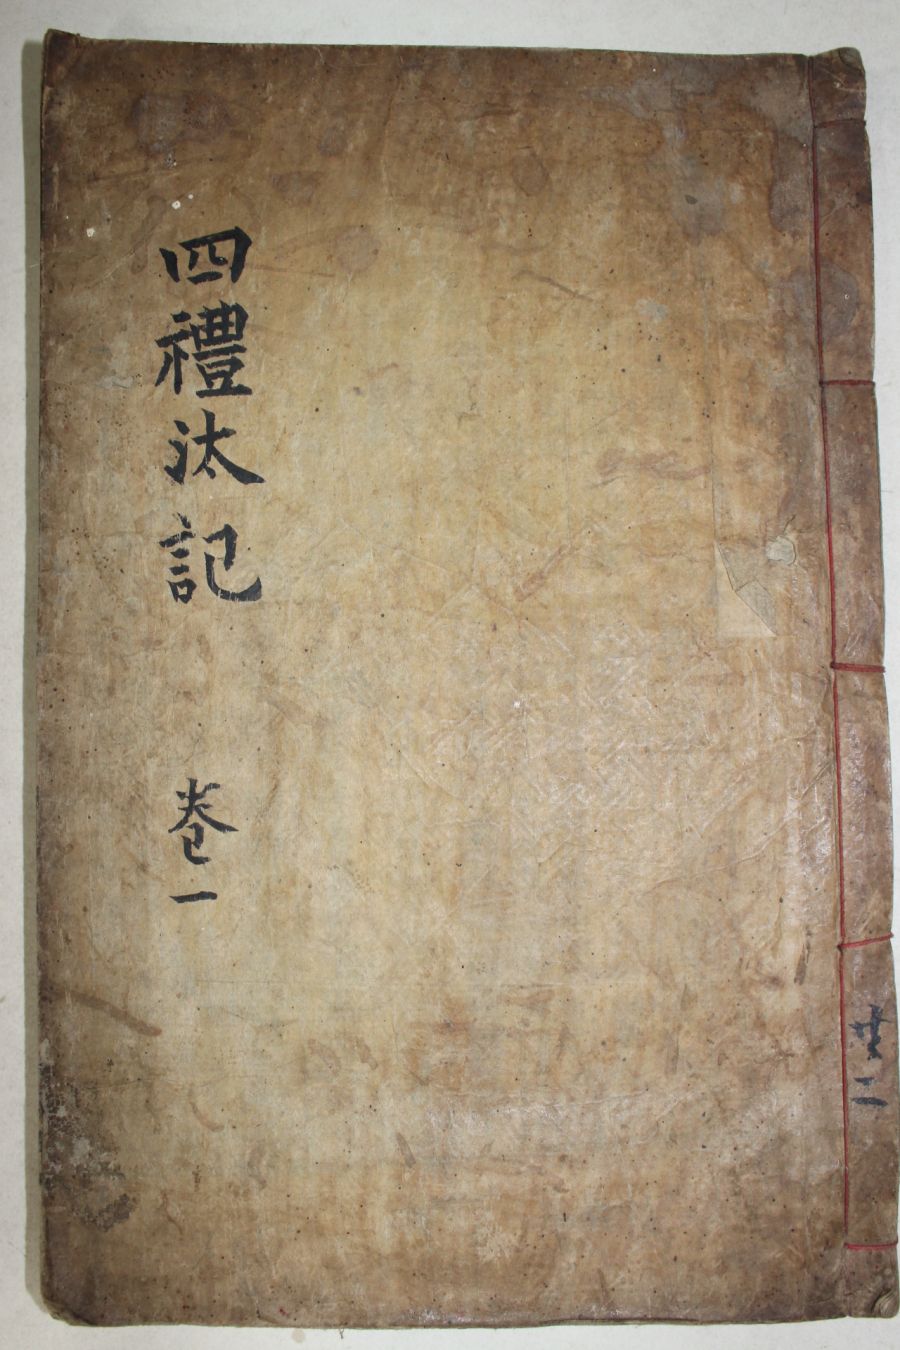 四禮汰記
卷一
共二